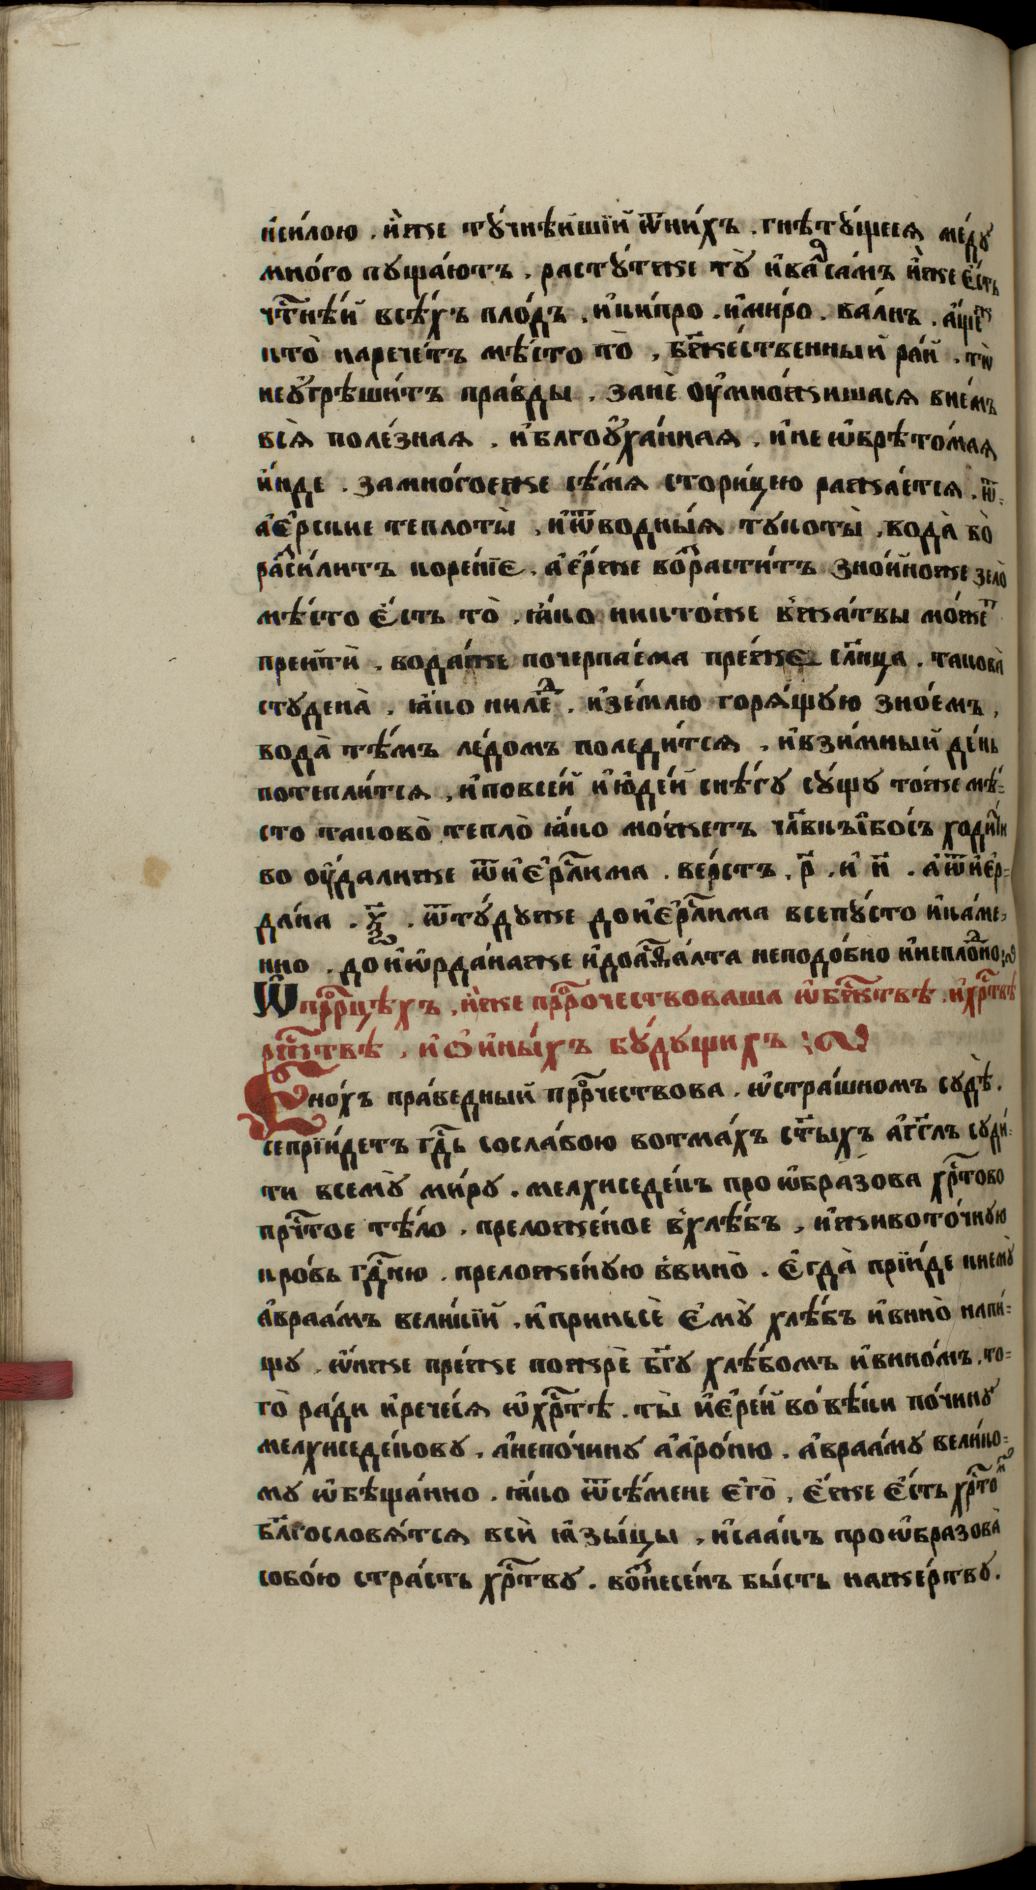 и҆си́лою . и҆̀же тꙋ́чнѣйшїй ѿни́хъ . гнѣтꙋ́щесѧ ме́дꙋ
мно́го пꙋща́ютъ . растꙋ́тже тꙋ̀ и҆ва́лсамъ и҆̀же є҆́сть
чтⷭ҇нѣ́й всѣ́хъ пло́дъ . и҆ки́про . и҆ми́ро . ва́лнъ . а҆́щеж
кто̀ нарече́тъ мѣ́сто то̀ , бж҃е́ственный ра́й . то̀
неꙋгрѣши́тъ пра́вды . занѐ ѹ҆мно́жишасѧ вне́мъ
всѧ̀ поле́знаѧ . и҆блгоꙋха́ннаѧ . и҆не ѡ҆брѣто́маѧ
и҆́нде . замно́гоеже сѣ́мѧ стори́цею ражда́етсѧ . ѿ=
ае҆́рские теплоты̀ , и҆ѿво́дныѧ тꙋкоты̀ , вода̀ бо̀
раси́литъ коре́нїе . ае҆́рже возрасти́тъ зно́йноже зело̀
мѣ́сто є҆́сть то̀ . ꙗ҆́ко никто́же в̾жа́твы мо́жет
прейтѝ . вода́же почерпа́ема пре́жде слн҃ца . такова̀
стꙋдена̀ . ꙗ҆́ко ꙗ҆ко ле́д . и҆зе́млю горѧ́щꙋю зно́емъ ,
вода̀ тѣ́мъ ле́домъ поледи́тсѧ , и҆взи́мный де́нь
потепли́тсѧ , и҆повсе́й и҆ю҆де́й снѣ́гꙋ сꙋ́щꙋ то́же мѣ́=
сто таково̀ тепло̀ ꙗ҆́ко мо́жетъ чл҃вкъ и҆бо́съ ходи́ти
во ѹ҆да́лиже ѿи҆є҆рⷭ҇лима . ве́рстъ . р҃ . и҆ н҃ . а҆ѿи҆є҆р=
да́на . х҃ . ѿтꙋ́дꙋже дои҆є҆рⷭ҇ли́ма всепꙋ́сто и҆ка́ме,
нно . дои҆ѡ҆рда́наже и҆доа҆сѳа́лта неподо́бно и҆непло́дно
Ѿпрⷪ҇ро́цѣхъ , и҆̀же прⷪ҇ро́чествоваша ѡ҆бж҃твѣ . и҆хрⷭ҇твѣ
ржⷭ҇твѣ , и҆ ѻ҆ и҆ны́хъ бꙋ́дꙋщихъ :
Є҆но́хъ пра́ведный прⷪ҇ро́чествова . ѡ҆стра́шномъ сꙋдѣ̀ .
се прїи́детъ гдⷭ҇ь сосла́вою вотма́хъ ст҃ыхъ а҆гг҃лъ сꙋди́=
ти всемꙋ̀ ми́рꙋ . мелхиседе́къ про ѡ҆бра́зова хрⷭ҇то́во
прⷱ҇тое тѣ́ло . преложе́ное в̾хлѣ́бъ , и҆живото́чнꙋю
кро́вь гдⷭ҇ню . преложе́нꙋю в̾вино̀ . Є҆гда̀ прїи́де кнемꙋ̀
а҆враа́мъ вели́кїй . и҆принесѐ є҆мꙋ̀ хлѣ́бъ и҆вино̀ напи́=
щꙋ . ѡ҆́нже пре́жде пожрѐ бг҃ꙋ хлѣ́бомъ и҆вино́мъ . то=
го̀ ра́ди и҆рече́сѧ ѡ҆хрⷭ҇тѣ . ты̀ и҆є҆ре́й во вѣ́ки по́чинꙋ
мелхиседе́ковꙋ . а҆непо́чинꙋ а҆а҆ро́ню . а҆враа́мꙋ вели́ко=
мꙋ ѡ҆бѣща́нно . ꙗ҆́ко ѿсѣ́мене є҆го̀ , є҆́же є҆́сть хрⷭ҇то́м
блг҃ословѧ́тсѧ всѝ ꙗ҆зы́цы , и҆саа́къ проѡ҆бразова̀
собо́ю стра́сть хрⷭ҇твꙋ . вознесе́нъ бы́сть наже́ртвꙋ .